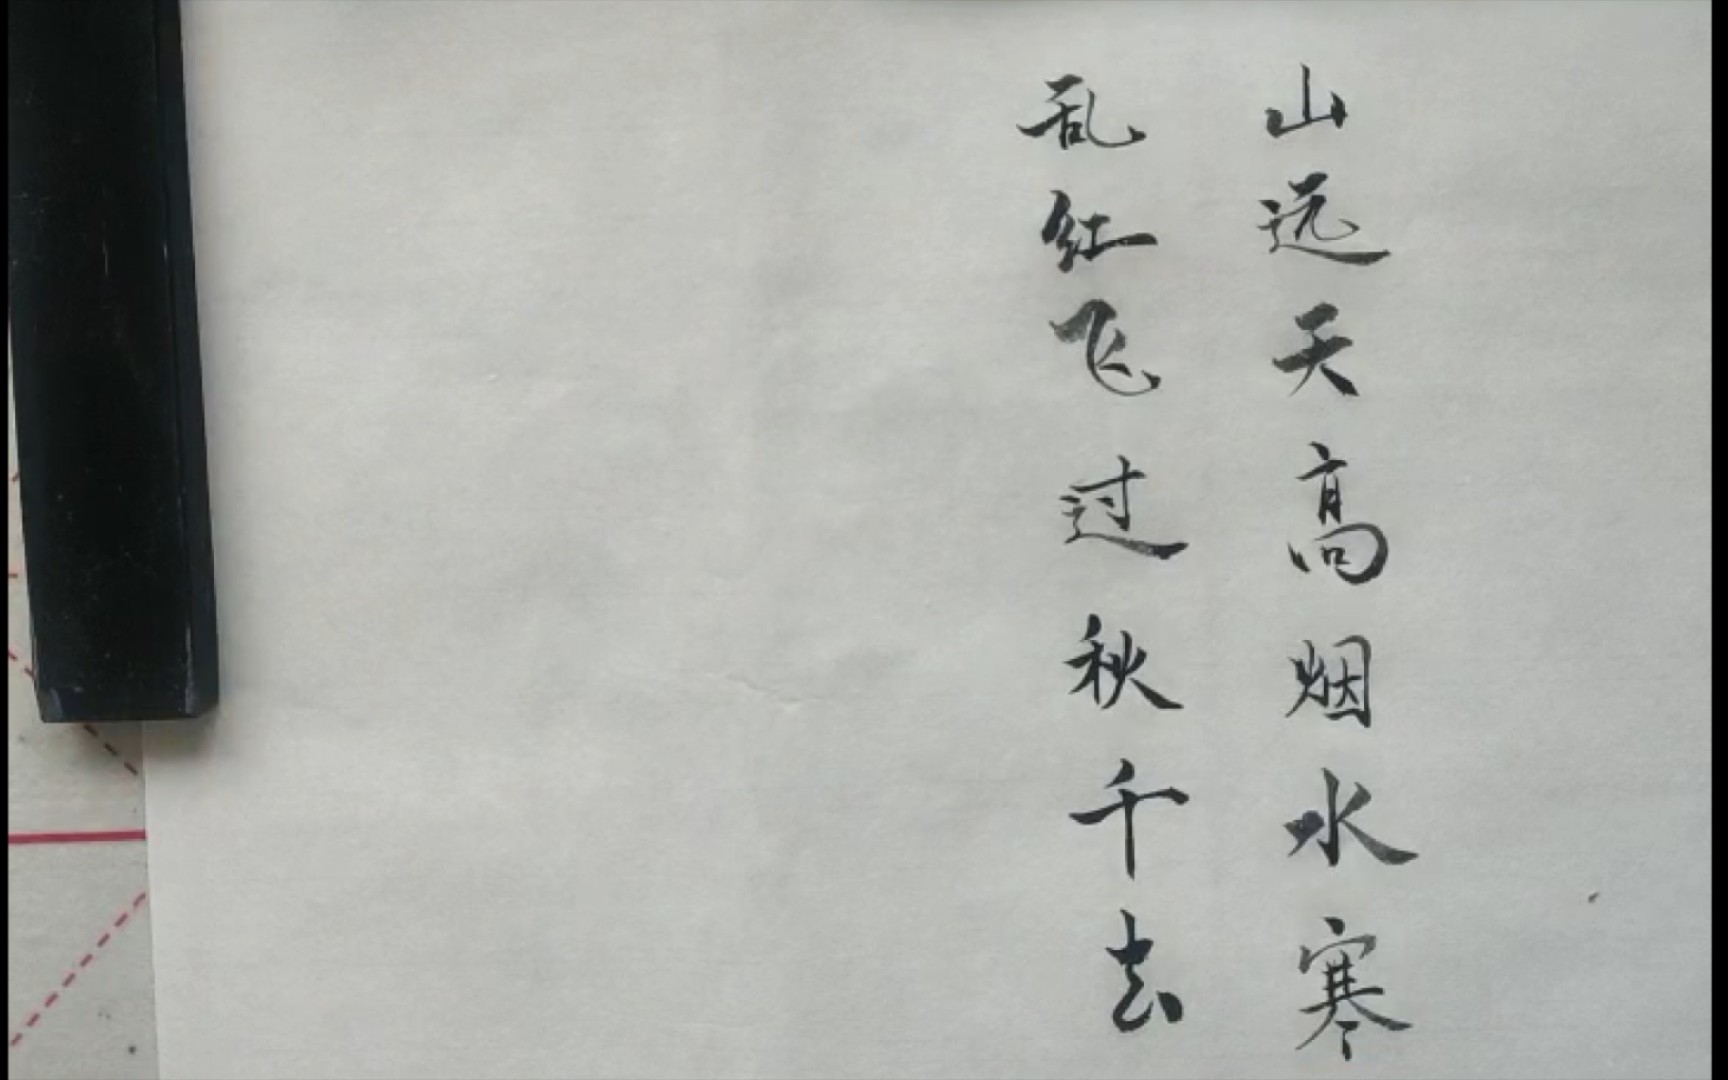 山远天高烟水寒
乱红飞过秋千去